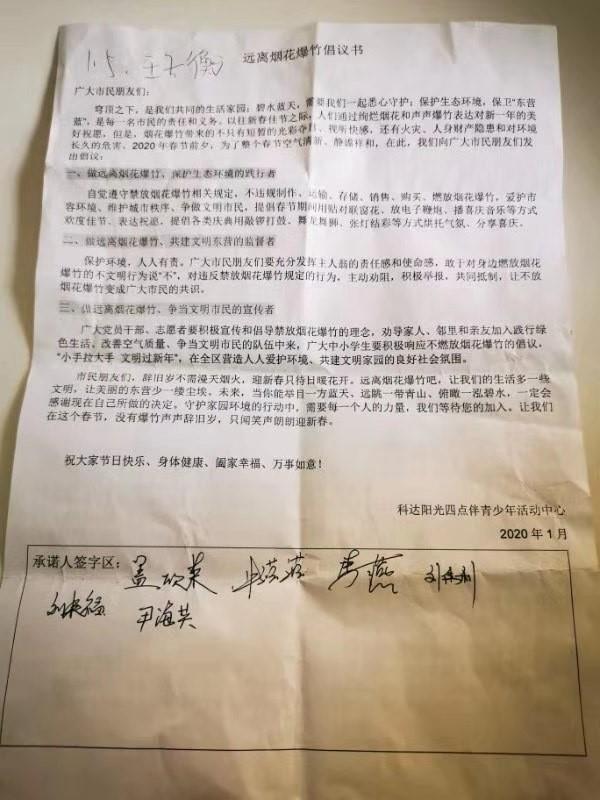 远离烟花爆竹倡议书
1.5.
广大市民朋友们:
穹顶之下,是我们共同的生活家园;碧水蓝天,需要我们一起悉心守护;保护生态环境,保卫“东营
蓝”,是每一名市民的责任和义务。以往新春佳节之际,人们通过绚烂烟花和声声爆竹表达对新一年的美
好祝愿,但是,烟花爆竹带来的不只有短暂的光彩夺目、视听快感,还有火灾、人身财产隐患和对环境
长久的危害。2020年春节前夕,为了整个春节空气清新、静谧祥和,在此,我们向广大市民朋友们发
出倡议:
一、做远离烟花爆竹、保护生态环境的践行者
自觉遵守禁放烟花爆竹相关规定,不违规制作、运输、存储、销售、购买、燃放烟花爆竹,爱护市
容环境、维护城市秩序、争做文明市民,提倡春节期间用贴对联窗花、放电子鞭炮、播喜庆音乐等方式
欢度佳节、表达祝愿,提倡各类庆典用敲锣打鼓、舞龙舞狮、张灯结彩等方式烘托气氛、分享喜庆。
二、做远离烟花爆竹、共建文明东营的监督者
保护环境,人人有责。广大市民朋友们要充分发挥主人翁的责任感和使命感,敢于对身边燃放烟花
爆竹的不文明行为说“不”,对违反禁放烟花爆竹规定的行为,主动劝阻,积极举报,共同抵制,让不放
烟花爆竹变成广大市民的共识。
三、做远离烟花爆竹、争当文明市民的宣传者
广大党员干部、志愿者要积极宣传和倡导禁放烟花爆竹的理念,劝导家人、邻里和亲友加入践行绿
色生活、改善空气质量、争当文明市民的队伍中来,广大中小学生要积极响应不燃放烟花爆竹的倡议,
“小手拉大手 文明过新年”,在全区营造人人爱护环境、共建文明家园的良好社会氛围。
市民朋友们,辞旧岁不需漫天烟火,迎新春只待日暖花开。远离烟花爆竹吧,让我们的生活多一些
文明,让美丽的东营少一缕尘埃。未来,当你能举目一方蓝天、远眺一带青山、俯瞰一泓碧水,一定会
感谢现在自己所做的决定。守护家园环境的行动中,需要每一个人的力量,我们等待您的加入。让我们
在这个春节,没有爆竹声声辞旧岁,只闻笑声朗朗迎新春。
祝大家节日快乐、身体健康、阖家幸福、万事如意!
科达阳光四点伴青少年活动中心
2020年1月
承诺人签字区:
尹海英